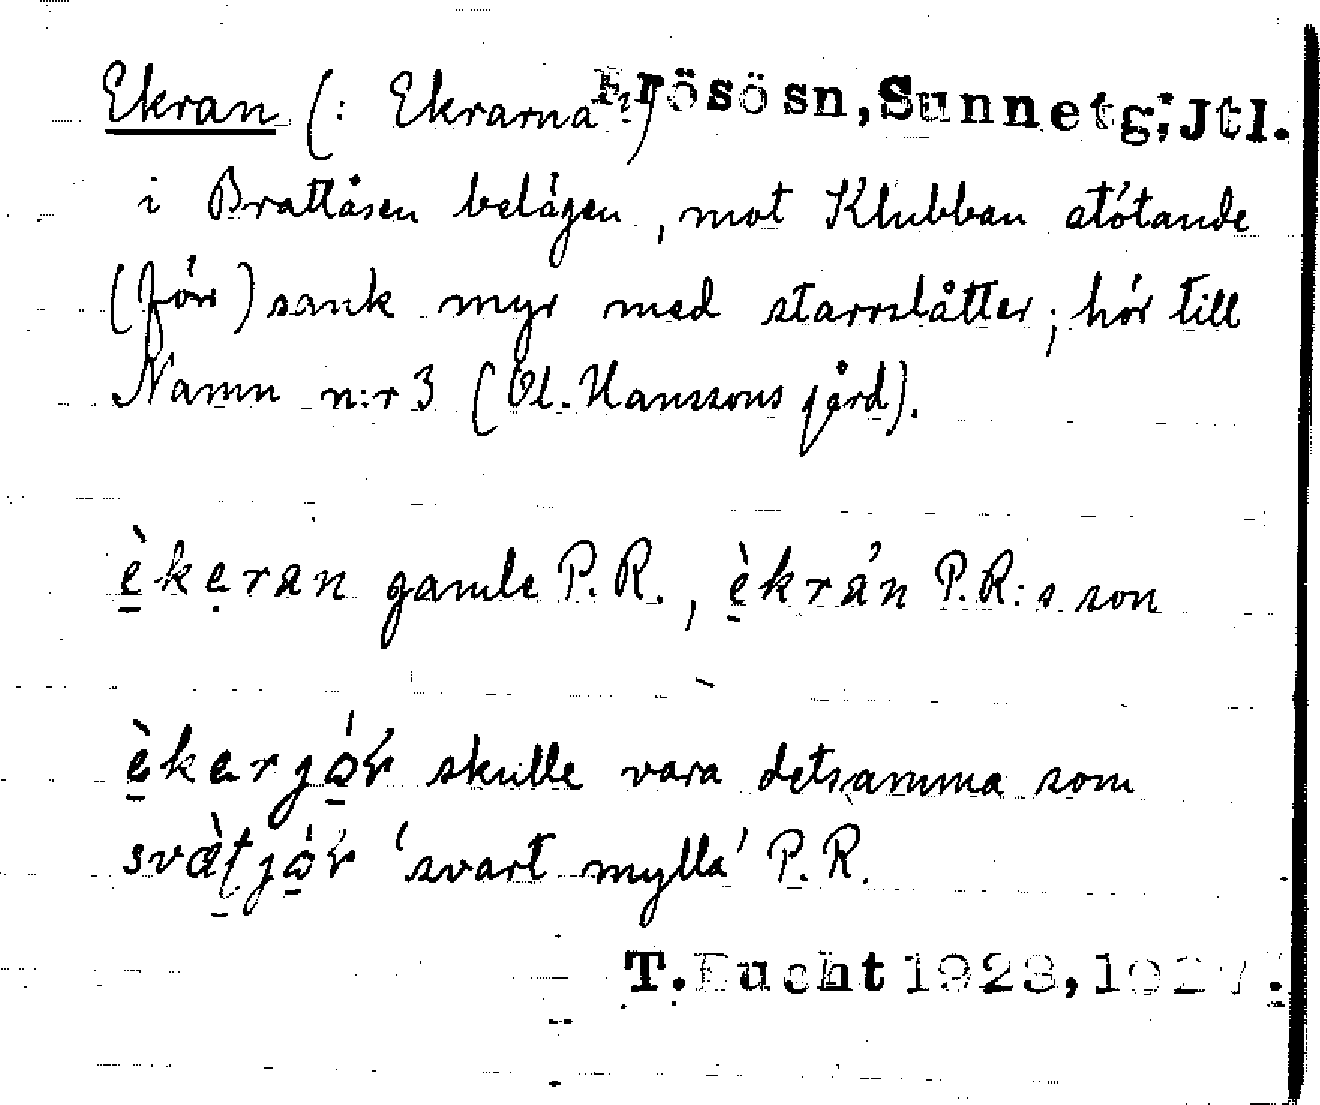 Ekran (: Ekrarna?) Frösösn, Sunnetg; Jtl.
i Brattåsen belägen, mot Klubban stötande
(förr) sank myr med starrslåtter; hör till
Namn n:r 3 (Ol. Hanssons gård).
èkeran gamle P.R., èkrán P.R:s son
èkerjór skulle vara detsamma som
svàtjór 'svart mylla' P.R.
T. Bucht 1923, 1927.